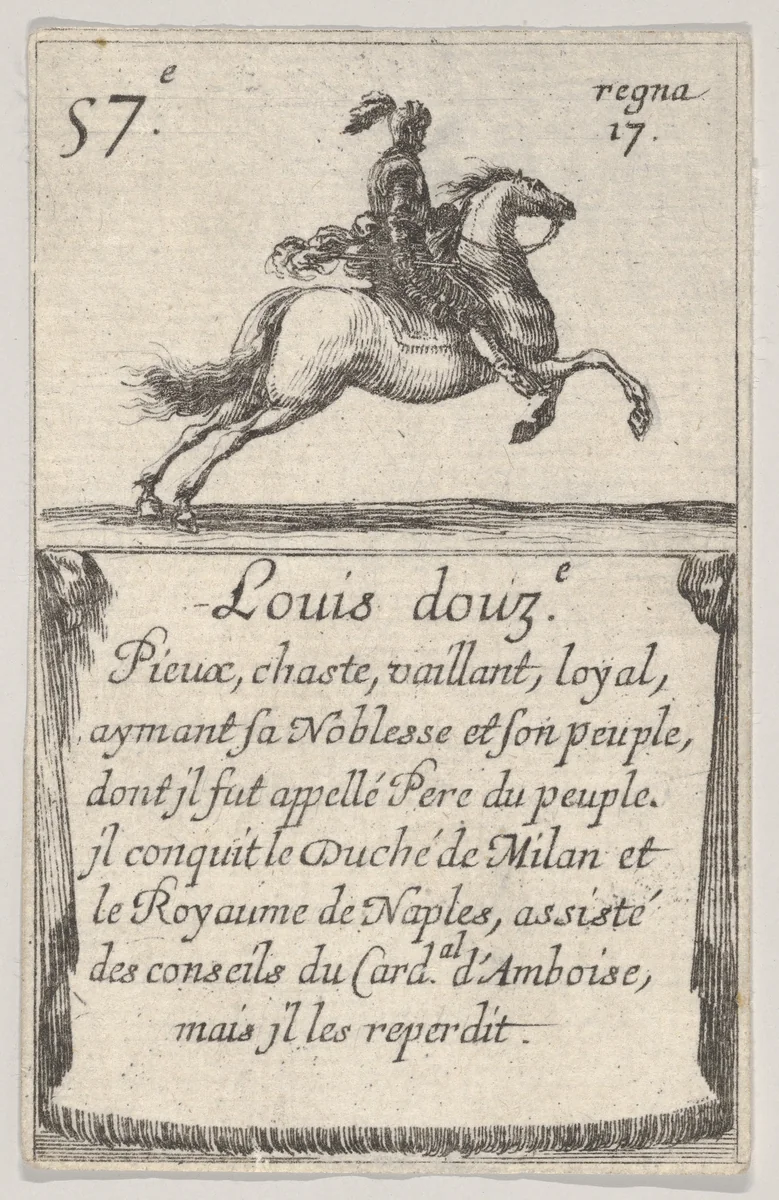 57.e
regna
17.
Louis douz.e
Pieux, chaste, vaillant, loyal,
aymant sa Noblesse et son peuple,
dont jl fut appellé Pere du peuple.
jl conquit le Duché de Milan et
le Royaume de Naples, assisté
des conseils du Card.al d'Amboise,
mais jl les reperdit.